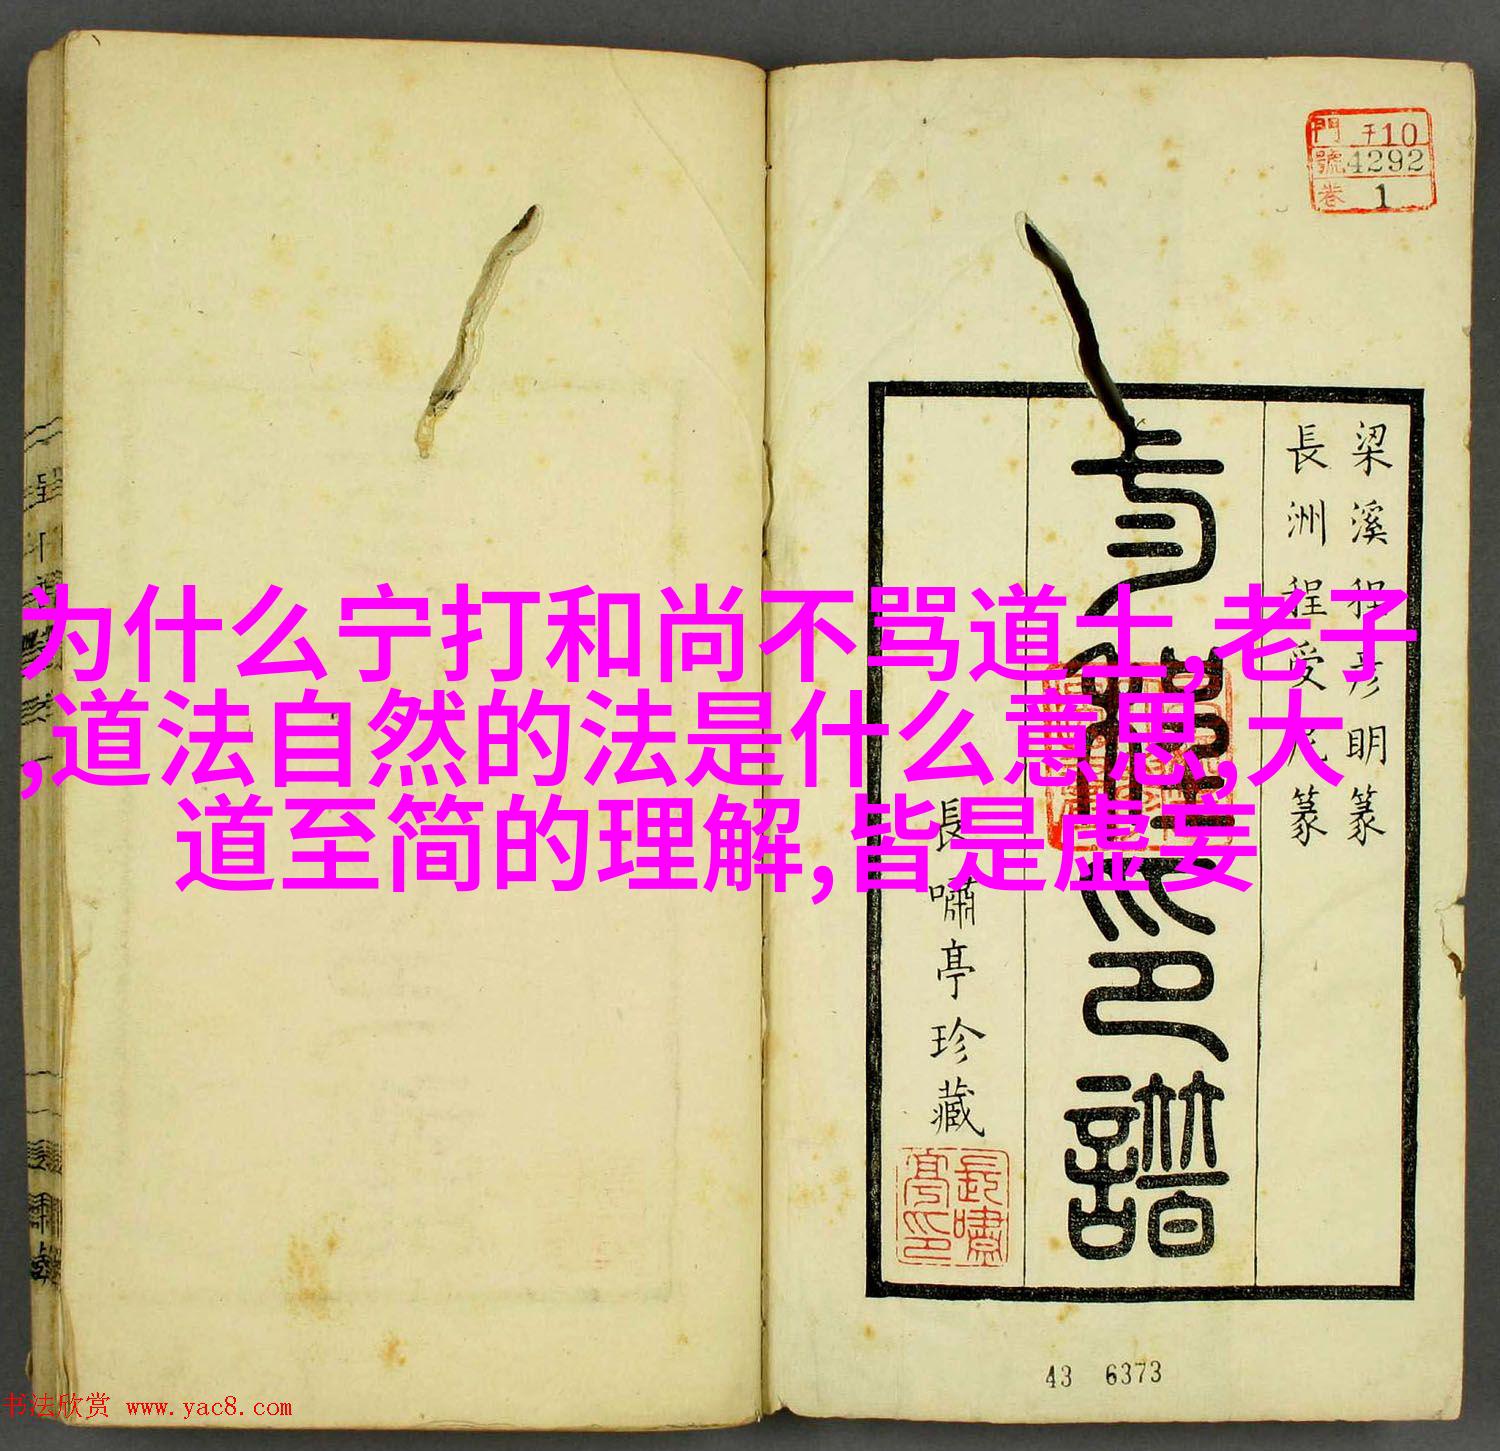 為什么宁打和尚不骂道士,老子
,道法自然的法是什么意思,大
道至简的理解,皆是虚妄
門 于10
號 4292
卷 1
梁溪程彦明篆
長洲程受尼篆
印譜
長嘯亭珍藏
長嘯亭印
43 6373
书法欣赏 www.yac8.com